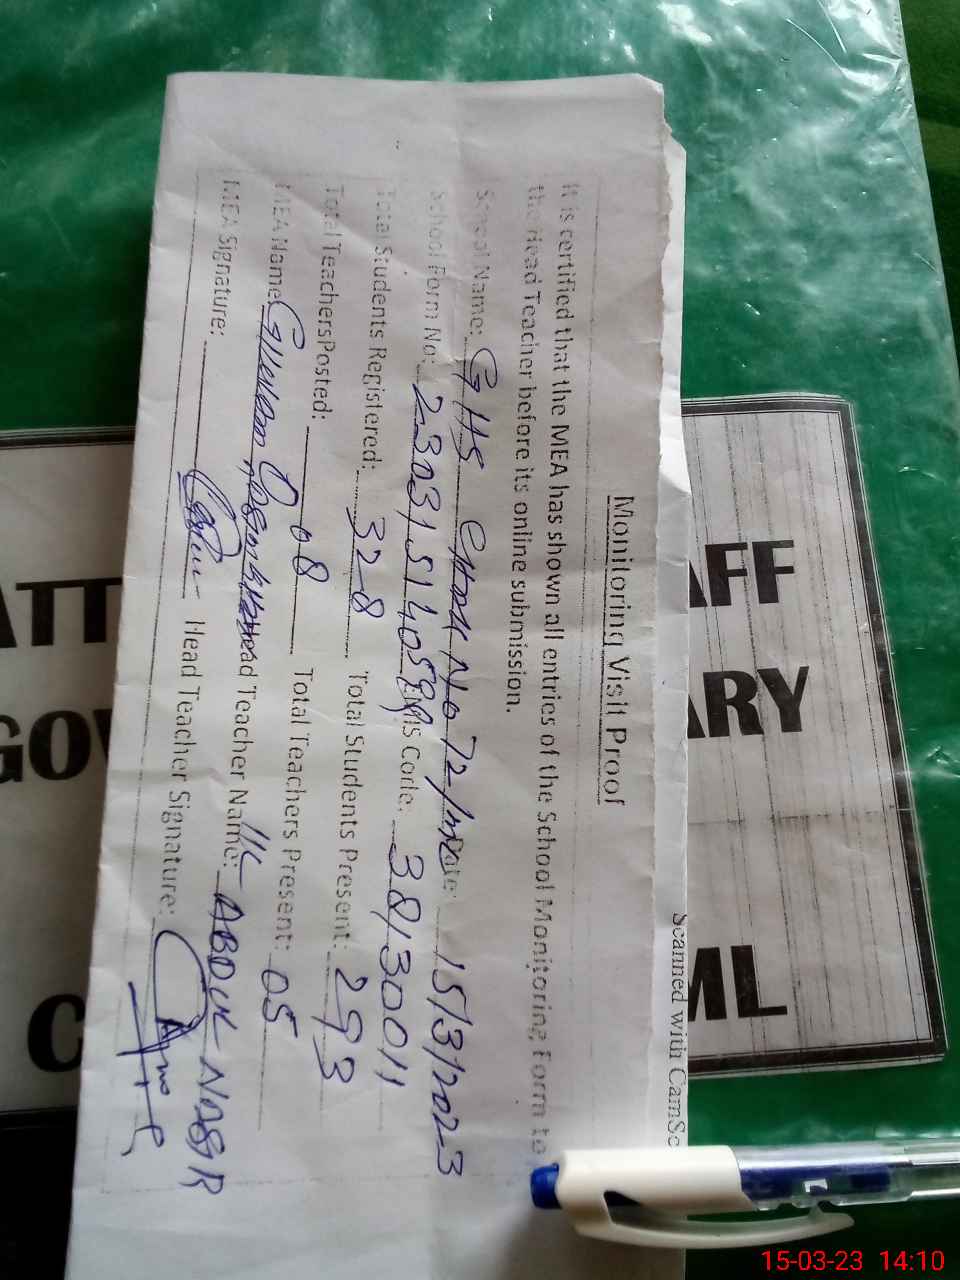 Monitoring Visit Proof
It is certified that the MEA has shown all entries of the School Monitoring Form to
the Head Teacher before its online submission.
School Name: GHS Chak No 72/ Date: 15/3/2023
School Form No: EMIS Code: 38130011
Total Students Registered: 328 Total Students Present: 293
Total TeachersPosted: 08 Total Teachers Present: 05
MEA Name Head Teacher Name: ABDUL NASIR
MEA Signature: Head Teacher Signature:
Scanned with CamSc
AFF
ARY
ML
ATT
GOV
C
15-03-23 14:10